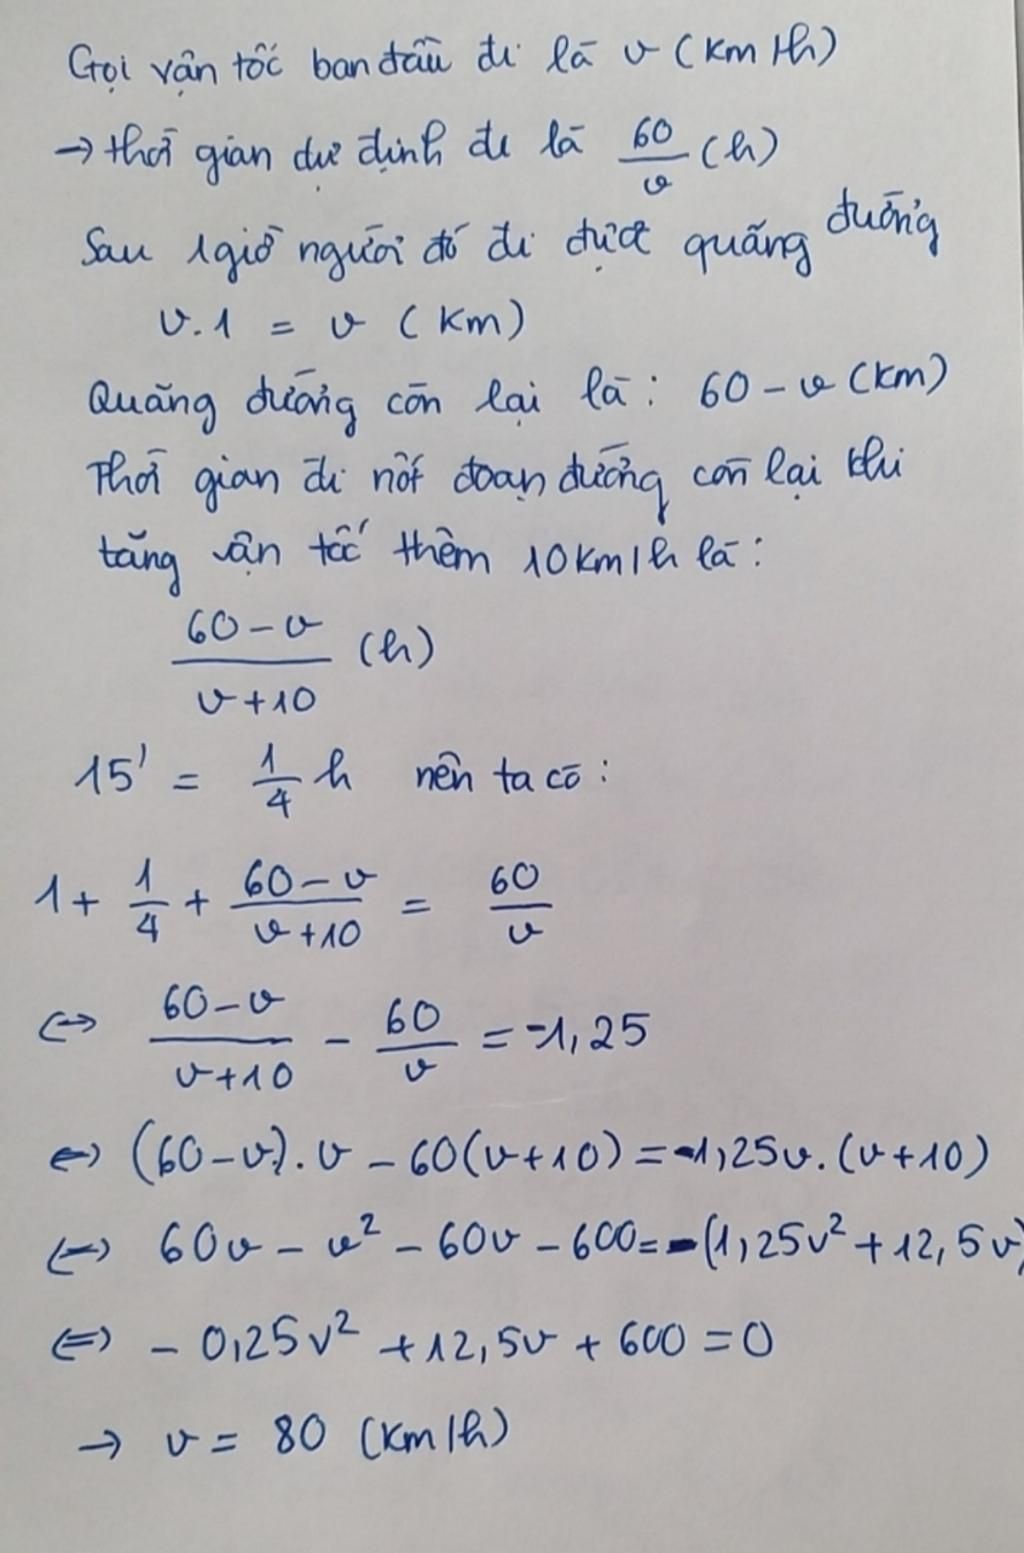 Gọi vận tốc ban đầu đi là v (km/h)
→ thời gian dự định đi là 60/v (h)
Sau 1 giờ người đó đi được quãng đường
v.1 = v (km)
Quãng đường còn lại là: 60 - v (km)
Thời gian đi nốt đoạn đường còn lại khi
tăng vận tốc thêm 10km/h là:
(60 - v)/(v + 10) (h)
15' = 1/4 h nên ta có:
1 + 1/4 + (60 - v)/(v + 10) = 60/v
⇔ (60 - v)/(v + 10) - 60/v = -1,25
⇔ (60 - v).v - 60(v + 10) = -1,25v.(v + 10)
⇔ 60v - v² - 60v - 600 = -(1,25v² + 12,5v)
⇔ - 0,25v² + 12,5v + 600 = 0
→ v = 80 (km/h)